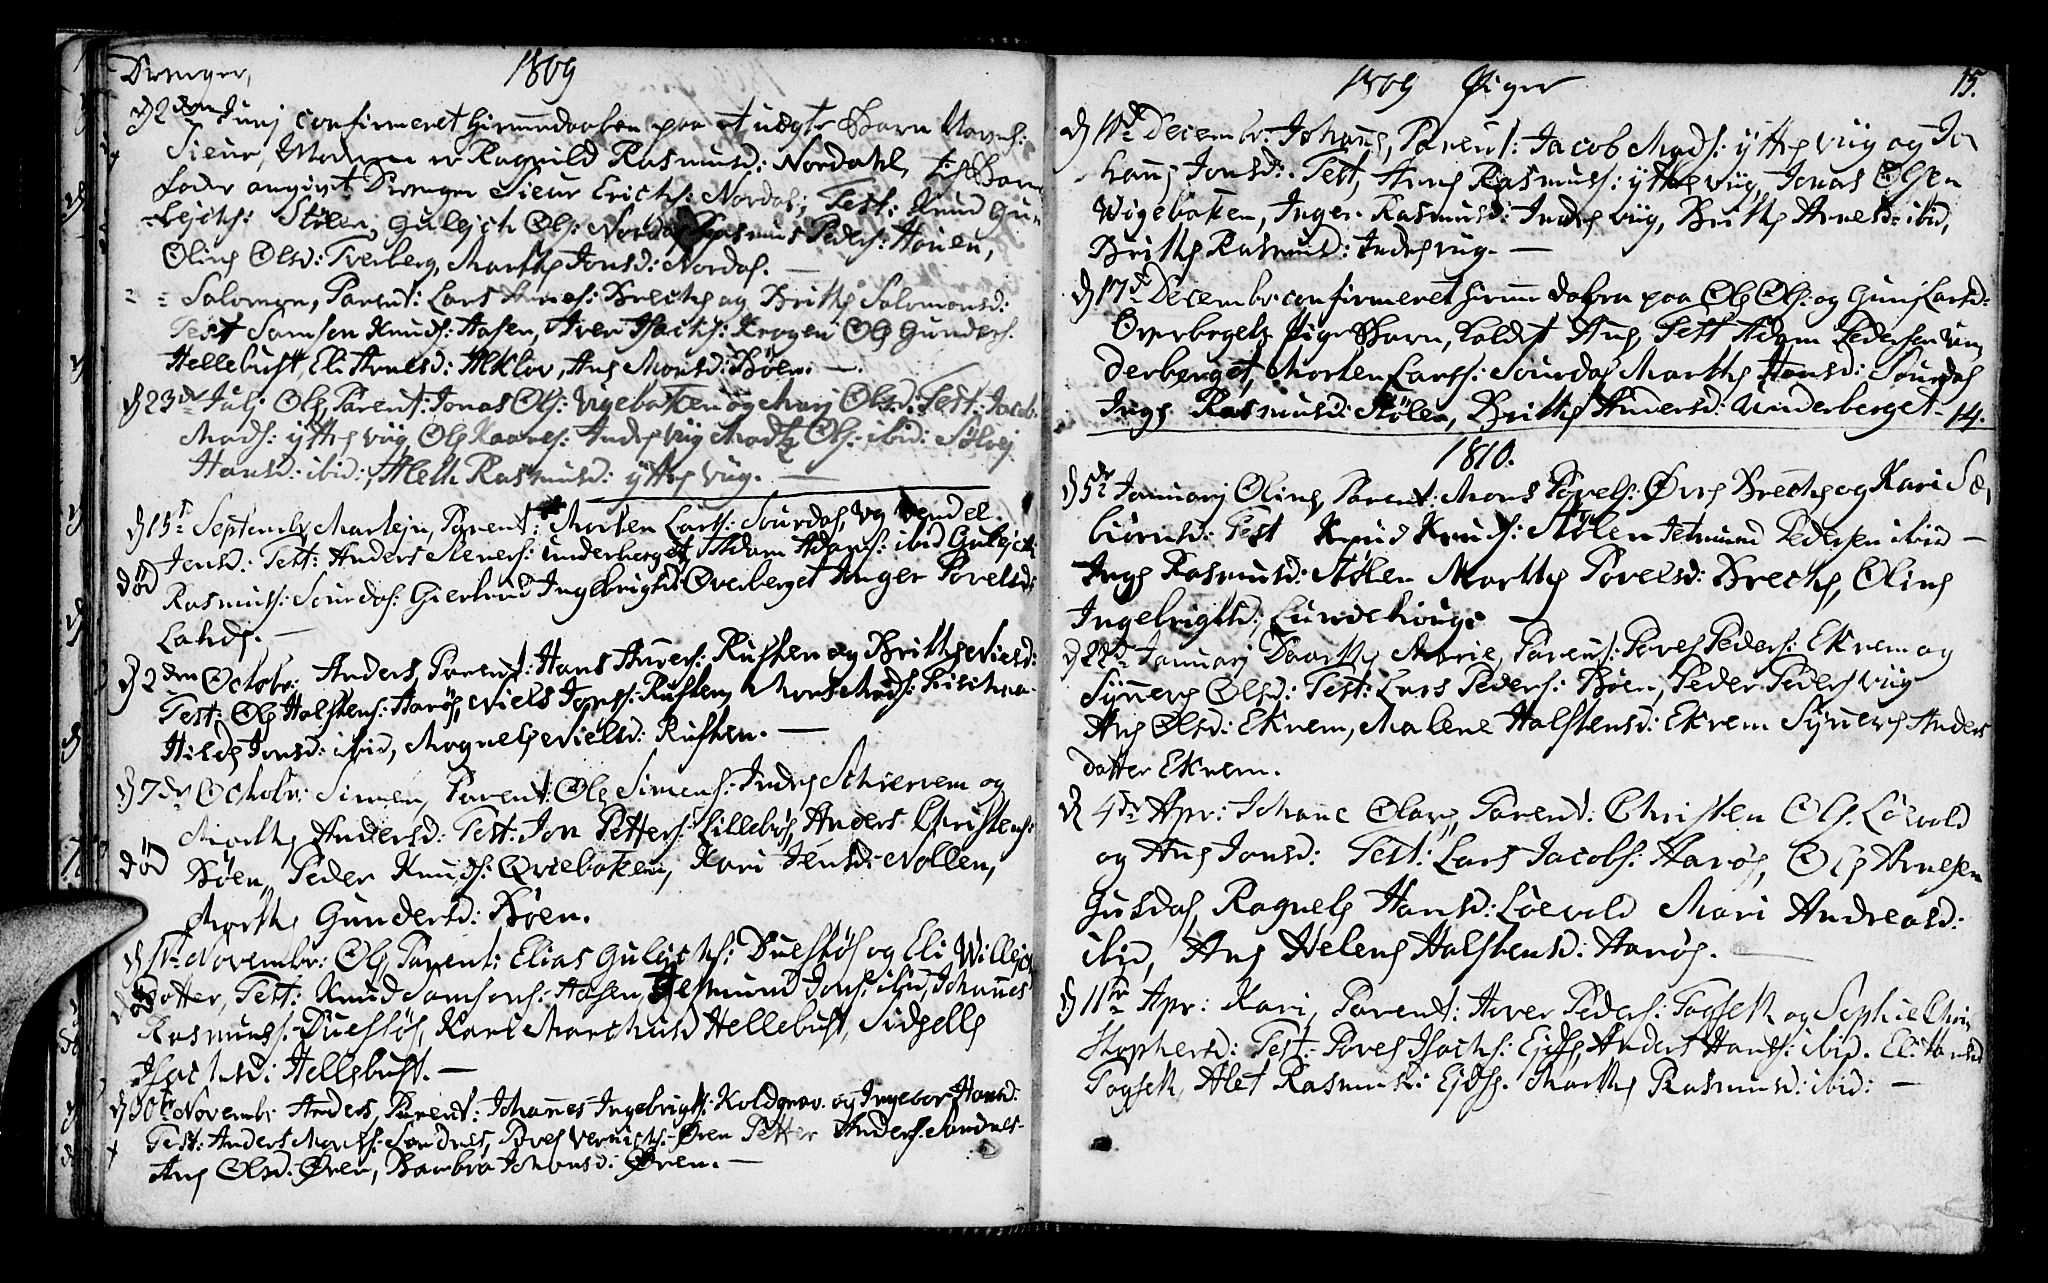 Drenger, 1809
d 2den Junj confirmeret Hiemmedaaben paa et uægte Barn Navnl:
Sieur, Moderen er Ragnild Rasmusd: Nordahl, til Barne
fader angivet Drenger Sieur Erichs: Nordal; Test: Knud Gu-
lejchs: Stölen, Gulejch Ols: Nordal Rasmus Peders: Houen,
Oline Olsd: Tverberg, Marthe Jonsd: Nordal. —
" = Salomon, Parent: Lars Anves: Breche og Brithe Salomonsd:
Test Samson Knuds: Aasen, Iver Isachs: Krogen Ole Gunders:
Hellebust, Eli Arnesd: Alklov, Ane Monsd: Böen. —
d 23de Julj Ole, Parent: Jonas Ols: Vigebakken og Marj Olsd: Test: Jacob
Mads: ÿttre Viig Ole Kaares: Indre Viig Madtz Ols: ibid: Sölvej
Hansd: ibid: Aleth Rasmusd: ÿttre Viig. —
d 15de Septembr Martejn, Parent: Morten Lars: Sourdal, og Vendel
Jensd: Test: Anders Steners: Underberget, Adam Adams: ibid Gulejch
død Rasmuss: Sourdal: Giertrud Ingebrigtsd: Overberget Inger Povelsd:
Lande. —
d 2den Octobr: Anders, Parent: Hans Anders: Rusten og Brithe Nielsd:
Test: Ole Halstens: Harøe, Niels Jons: Rusten, Mons Mads: Lischea-
Hilde Jonsd: ibid, Magnele Nielsd: Rusten. —
d 7de Octobr: Simen, Parent: Ole Simens: Indre Schiervem og
Marthe Andersd: Test: Jon Petters: Lillebøe, Anders Christens:
død Böen, Peder Knuds: Qviebakken, Kari Jensd: Nollen,
Marthe Gundersd: Böen.
d 1te Novembr: Ole Parent: Elias Gulejchs: Duestöl og Eli Willejch
død dotter, Test: Knud Samsons: Aasen, Jetmund Jons: ibid, Johannes
Rasmuss: Duestöl, Kari Marchusd Hellebust, Sidselle
Isachsd: Hellebust. —
d 30te Novembr: Anders, Parent: Johannes Ingebrigts: Koldgrav: og Ingebor Hansd:
Test: Anders Monss: Sandnes, Povel Vernichs: Øren Petter Anders: Sandnes
Ane Olsd: Øren, Barbro Johansd: Øren. —
1809 Piger 15.
d 10de Decembr: Johanne, Parent: Jacob Mads: ÿttre Viig og Jo
hanne Jonsd: Test, Arne Rasmuss: ÿttre Viig, Jonas Olsen
Wigebakken, Inger Rasmusd: Indre Viig, Brithe Arnesd: ibid,
Brithe Rasmusd: Indre Viig. —
d 17de Decembr: confirmeret Hiemme daben paa Ole Ols: og Gunj Larsd:
Overbergets Pige Barn, kaldet Ane, Test Adam Pedersen Un
derberget, Morten Lars: Sourdal Marthe Hansd: Sourdal
Inge Rasmusd: Stölen, Brithe Andersd: Underberget - 14.
1810.
d 5te Januarj Oline, Parent: Mons Povels: Øvre Breche og Kari Sæ
biörnsd: Test Knud Knuds: Stölen Jetmund Pedersen ibid —
Inge Rasmusd: Stölen Marthe Povelsd: Breche, Oline
Ingebrigtsd: Lundehoug: —
d 22de Januarj Dorthe Marie, Parent: Povel Peders: Ekrem og
Synneve Olsd: Test: Lars Peders: Böen, Peder Peders Viig
Ane Olsd: Ekrem, Malene Halstensd: Ekrem Synneve Anders
datter Ekrem.
d 4de Apr: Johanne Olave, Parent: Christen Ols: Löevold
og Ane Jonsd: Test: Lars Jacobs: Harøe, Ole Arnesen
Gusdal, Ragnele Hansd: Löevold Mari Andreasd:
ibid, Ane Helene Halstensd: Harøe. —
d 11te Apr: Kari, Parent: Aver Peders: Tagseth og Sophie Chri
stophersd: Test: Povel Isachs: Ejde, Anders Hans: ibid. Eli Hansd
Tagseth, Alet Rasmusd: Ejde Marthe Rasmusd: ibid: —